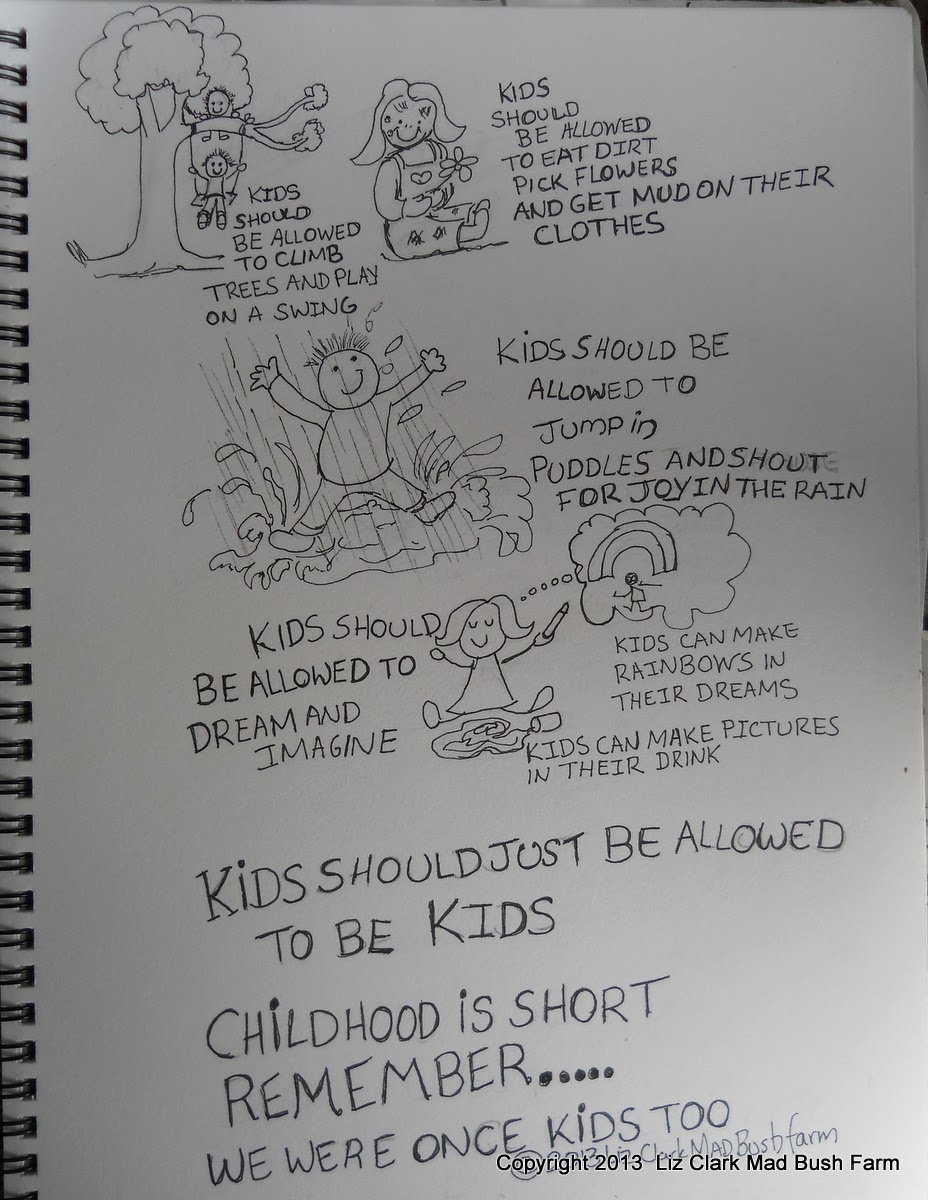 KIDS
SHOULD
BE ALLOWED
TO CLIMB
TREES AND PLAY
ON A SWING
KIDS
SHOULD
BE ALLOWED
TO EAT DIRT
PICK FLOWERS
AND GET MUD ON THEIR
CLOTHES
KiDS SHOULD BE
ALLOWED TO
JUMP in
PUDDLES AND SHOUT
FOR JOY IN THE RAIN
KIDS SHOULD
BE ALLOWED TO
DREAM AND
IMAGINE
KIDS CAN MAKE
RAINBOWS IN
THEIR DREAMS
KIDS CAN MAKE PICTURES
IN THEIR DRINK
KiDS SHOULD JUST BE ALLOWED
TO BE KIDS
CHiLDHOOD iS SHORT
REMEMBER.....
WE WERE ONCE KiDS TOO
© 2013 Liz Clark MAD Bush farm
Copyright 2013 Liz Clark Mad Bush Farm